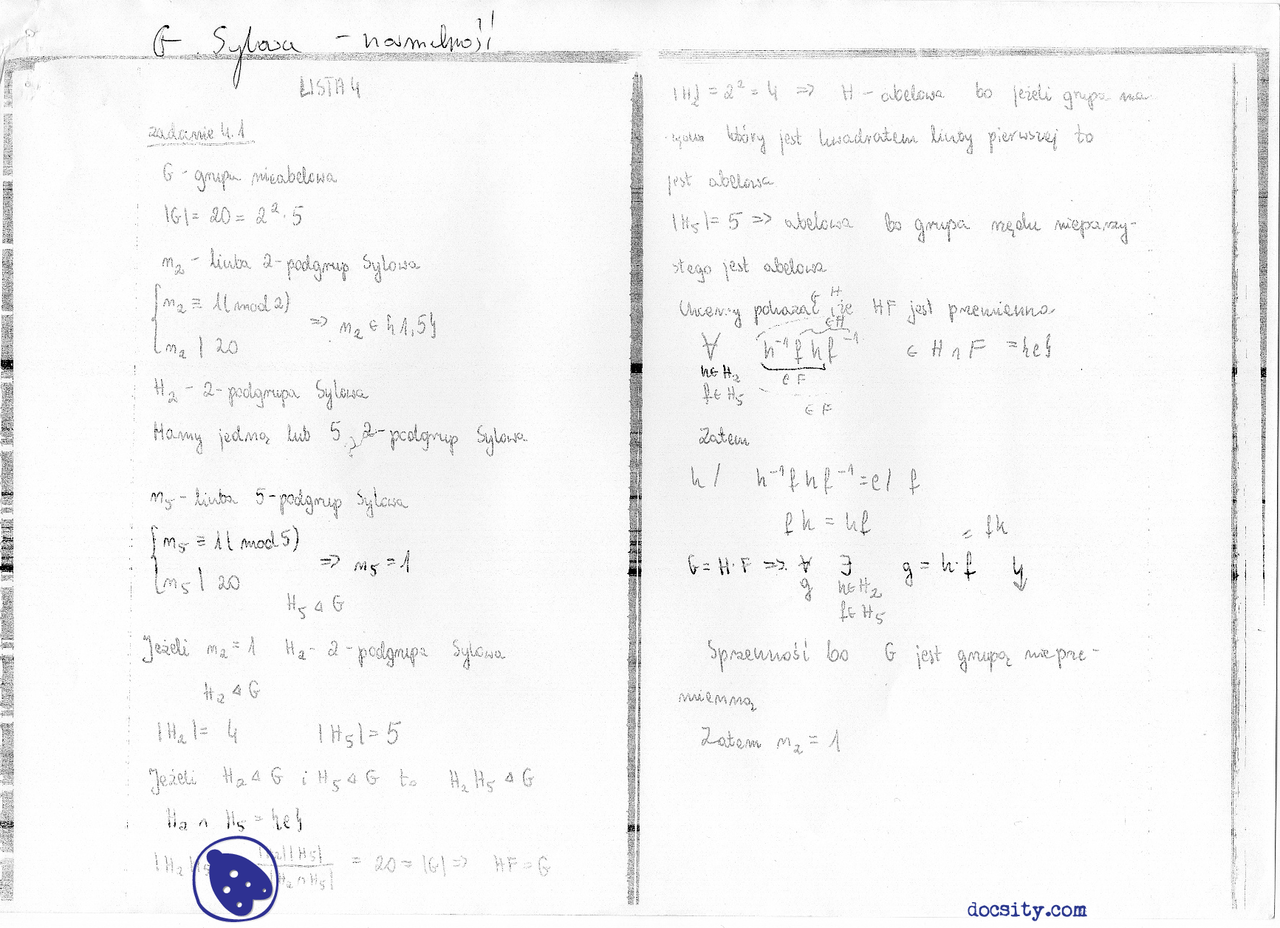 G. Sylowa - normalność
LISTA 4
zadanie 4.1
G - grupa nieabelowa
|G| = 20 = 2² · 5
n₂ - liczba 2-podgrup Sylowa
{ n₂ ≡ 1 (mod 2)
n₂ | 20
⇒ n₂ ∈ {1,5}
H₂ - 2-podgrupa Sylowa
Mamy jedną lub 5 2-podgrup Sylowa
n₅ - liczba 5-podgrup Sylowa
{ n₅ ≡ 1 ( mod 5)
n₅ | 20
⇒ n₅ = 1
H₅ ⊲ G
Jeżeli n₂ = 1 H₂ - 2-podgrupa Sylowa
H₂ ⊲ G
|H₂| = 4 |H₅| = 5
Jeżeli H₂ ⊲ G i H₅ ⊲ G to H₂H₅ ⊲ G
H₂ ∩ H₅ = {e}
|H₂||H₅|
|H₂∩H₅|
= 20 = |G| ⇒ HF = G
|H₂| = 2² = 4 ⇒ H - abelowa bo jeżeli grupa ma
który jest kwadratem liczby pierwszej to
jest abelowa
|H₅| = 5 ⇒ abelowa bo grupa rzędu nieparzy-
stego jest abelowa
Chcemy pokazać że HF jest przemienna
∈ H
∈ H
∀ h⁻¹ f h f⁻¹ ∈ H ∩ F = {e}
h∈H₂
f∈H₅
∈ F
∈ F
Zatem
h / h⁻¹ f h f⁻¹ = e / f
f h = h f
G = H·F ⇒ ∀ ∃ g = h·f = fh
g h∈H₂
f∈H₅
Sprzeczność bo G jest grupą nieprze-
mienną
Zatem n₂ = 1
docsity.com